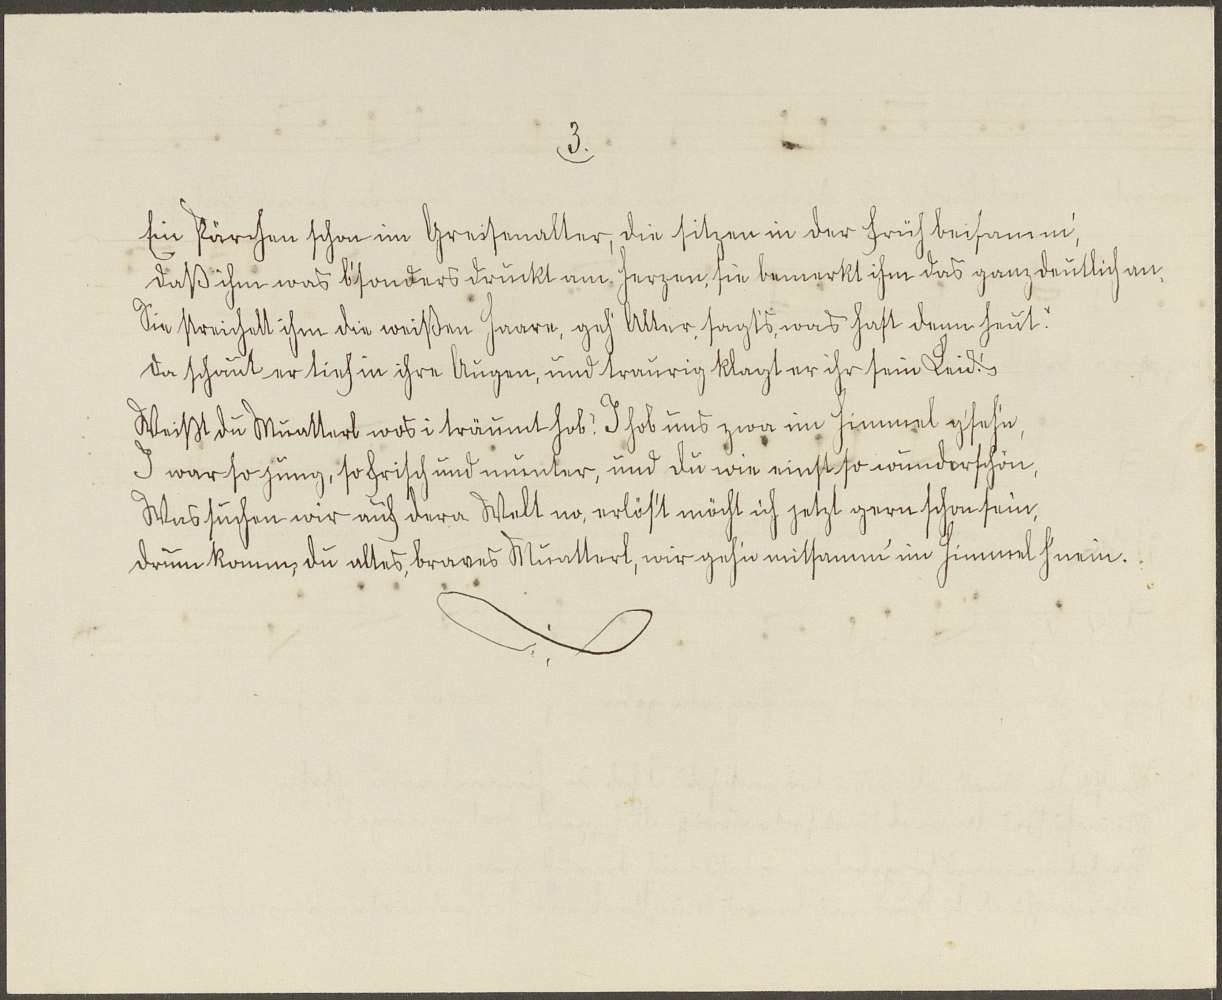 3.
Ein Pärchen schon im Greisenalter, die sitzen in der Früh beisamm',
daß ihm was b'sonders druckt am Herzen, sie bemerkt ihm das ganz deutlich an.
Sie streichelt ihm die weißen Haare, geh' Alter, sagt's, was hast denn heut?
da schaut er tief in ihre Augen, und traurig klagt er ihr sein Leid:
Weißt du Muatterl wos i träumt hob? I hob uns zwa im Himmel g'seh'n,
I war so jung, so frisch und munter, und du wie einst so wunderschön,
Was suchen wir auf dera Welt no, erlöst möcht ich jetzt gern schon sein,
drum komm, du altes, braves Muatterl, wir geh'n mitsamm' im Himmel h'nein.